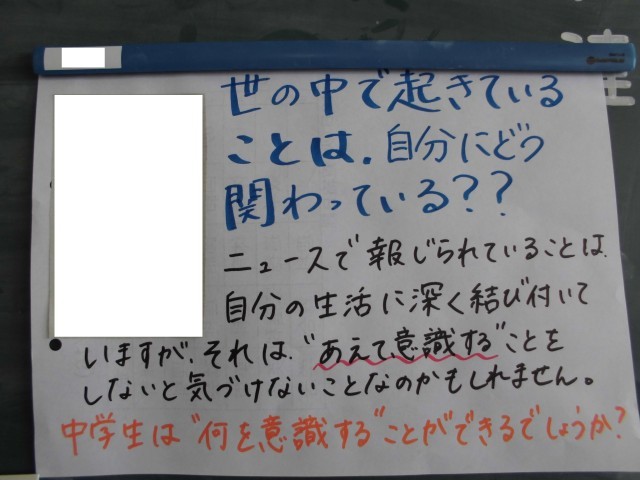 世の中で起きている
ことは、自分にどう
関わっている??
ニュースで報じられていることは、
自分の生活に深く結び付いて
いますが、それは、"あえて、意識する"ことを
しないと気づけないことなのかもしれません。
中学生は"何を、意識する"ことができるでしょうか?